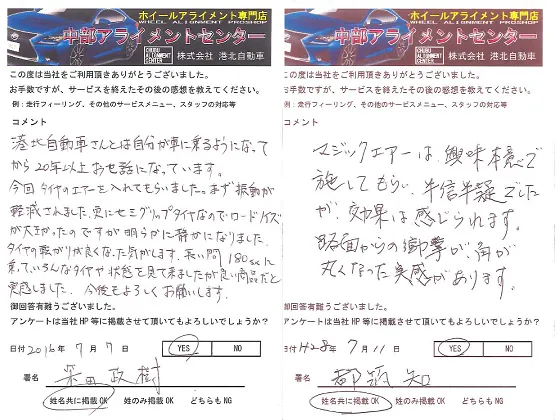 ホイールアライメント専門店
WHEEL ALIGNMENT PROSHOP
中部アライメントセンター
CHUBU ALIGNMENT CENTER
株式会社 港北自動車
この度は当社をご利用頂きありがとうございました。
お手数ですが、サービスを終えたその後の感想を教えてください。
例：走行フィーリング、その他のサービスメニュー、スタッフの対応等
コメント
港北自動車さんとは自分が車に乗るようになって
から20年以上お世話になっています。
今回タイヤのエアーを入れてもらいました。まず振動が
軽減されました。更にセミグリップタイヤなのでロードノイズ
が大きかったのですが明らかに静かになりました。
タイヤの転がりが良くなった気がします。長い間180sxに
乗っていろんなタイヤや状態を見て来ましたが良い商品だと
実感しました。今後もよろしくお願いします。
御回答有難うございました。
アンケートは当社HP等に掲載させて頂いてもよろしいでしょうか？
日付 2016年 7月 7日
YES
NO
署名
政樹
姓名共に掲載OK
姓のみ掲載OK
どちらもNG
ホイールアライメント専門店
WHEEL ALIGNMENT PROSHOP
中部アライメントセンター
CHUBU ALIGNMENT CENTER
株式会社 港北自動車
この度は当社をご利用頂きありがとうございました。
お手数ですが、サービスを終えたその後の感想を教えてください。
例：走行フィーリング、その他のサービスメニュー、スタッフの対応等
コメント
マジックエアーは、興味本意で
施してもらい、半信半疑でした
が、効果は感じられます。
路面からの衝撃が、角が
丸くなった実感があります。
御回答有難うございました。
アンケートは当社HP等に掲載させて頂いてもよろしいでしょうか？
日付 H28年 7月 11日
YES
NO
署名
都築 知
姓名共に掲載OK
姓のみ掲載OK
どちらもNG